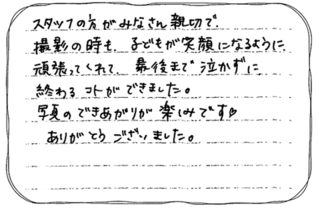 スタッフの方がみなさん親切で、
撮影の時も、子どもが笑顔になるように
頑張ってくれて、最後まで泣かずに
終わるコトができました。
写真のできあがりが楽しみです♡
ありがとうございました。